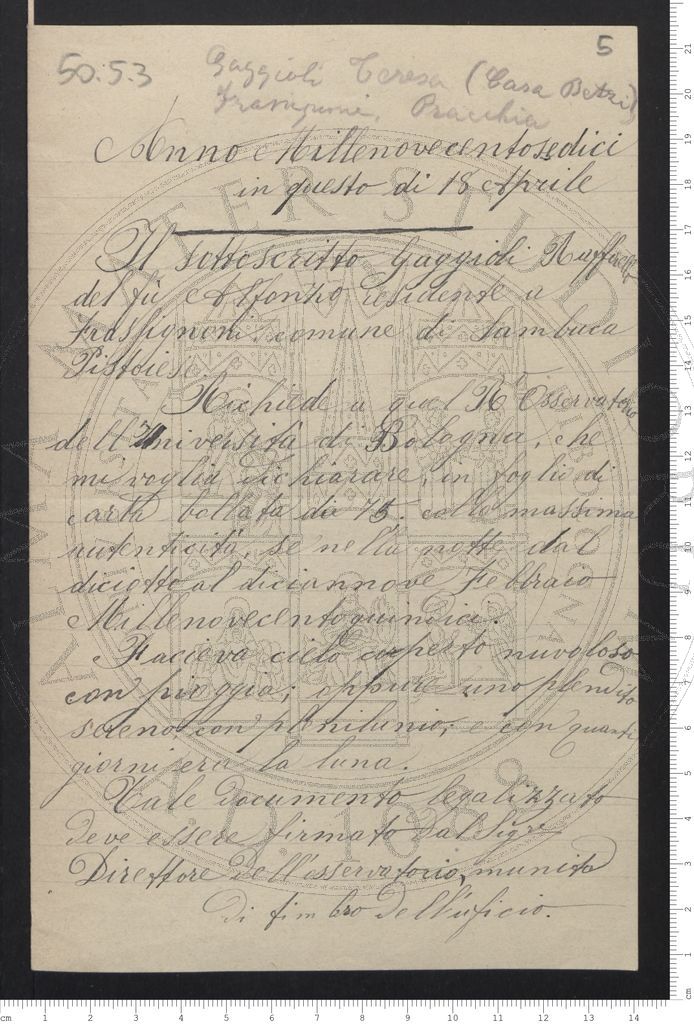 5
50.5.3
Gaggioli Teresa (Casa Betti)
Frassignoni, Pracchia
Anno Millenovecentosedici
in questo di 18 Aprile
Il sottoscritto Gaggioli Raffaello
del fù Alfonzo residente a
Frassignoni, comune di Sambuca
Pistoiese.
Richiede a quel R Osservatorio
dell'Università di Bologna, che
mi voglia dichiarare, in foglio di
carta bollata da 75. colla massima
autenticità, se nella notte dal
diciotto al diciannove Febbraio
Millenovecentoquindici.
Facieva cielo coperto nuvoloso
con pioggia; oppure uno plendito
sereno, con plenilunio, e con quanti
giorni era la luna.
Tale documento legalizzato
deve essere firmato dal Sigre
Direttore dell'osservatorio, munito
di timbro dell'uficio.
ALMA MATER STUDIORUM
A.D. 1088